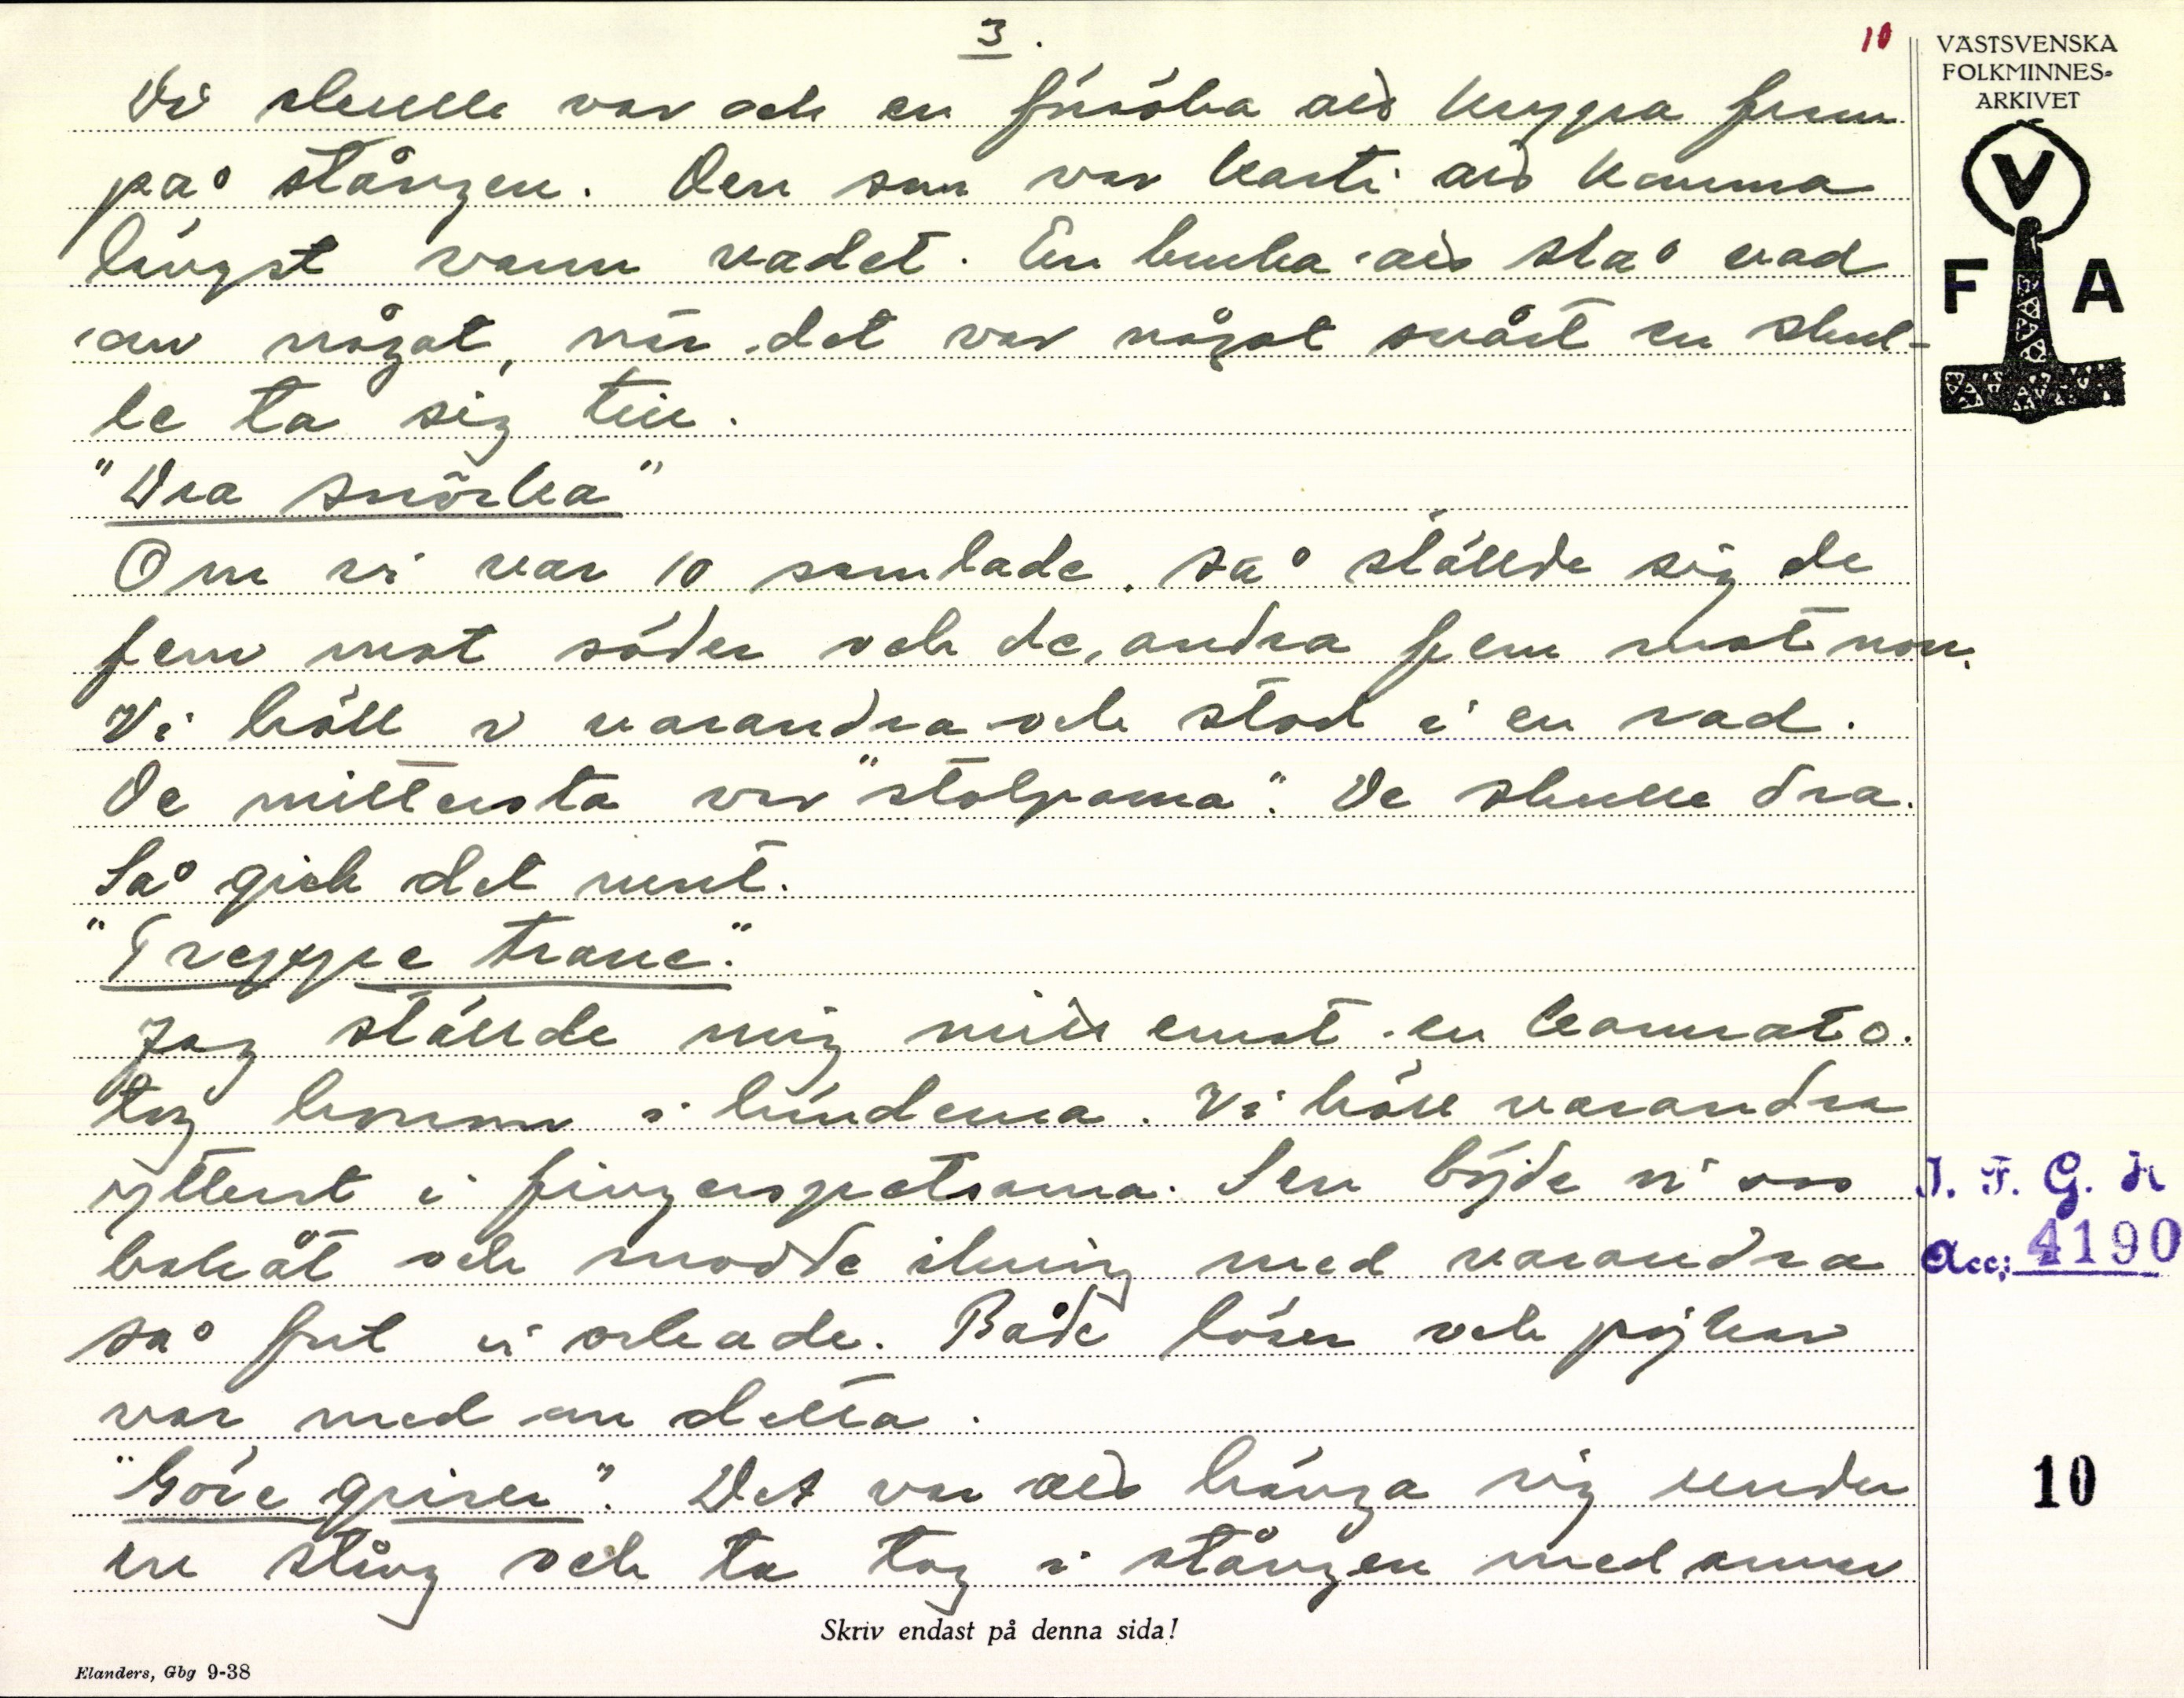 3.
10
VÄSTSVENSKA
FOLKMINNES-
ARKIVET
V
F A
Vi skulle var och en försöka att krypa fram
på stången. Den som var karti att komma
längst vann vadet. En bruka att slå vad
om något, när det var något svårt en skul-
le ta sig till.
"Dra snörka"
Om vi var 10 samlade, så ställde sig de
fem mot söder och de andra fem mot norr.
Vi höll i varandra och stod i en rad.
De mittersta var "stolparna". De skulle dra.
Så gick det runt.
"Treppe trane."
Jag ställde mig mitt emot en kamrat o.
tog honom i händerna. Vi höll varandra
ytterst i fingerspetsarna. Sen böjde vi oss
bakåt och snodde ikring med varandra
så fort vi orkade. Både töser och pojkar
var med om detta.
"Göre griser". Det var att hänga sig under
en stång och ta tag i stången med armar
J. F. G. H
Acc: 4190
10
Skriv endast på denna sida!
Elanders, Gbg 9-38